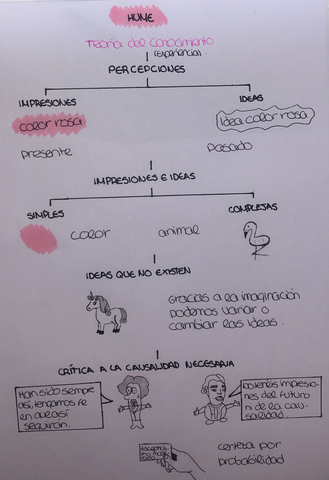 HUME
Teoría del conocimiento
(experiencia)
PERCEPCIONES
IMPRESIONES
IDEAS
color rosa
Idea color rosa
presente
pasado
IMPRESIONES E IDEAS
SIMPLES
COMPLEJAS
color
animal
IDEAS QUE NO EXISTEN
Gracias a la imaginación
podemos variar o
cambiar las ideas.
CRÍTICA A LA CAUSALIDAD NECESARIA
Han sido siempre
así, tengamos fe
en que así
seguirán.
No tenéis impresio-
nes del futuro
ni de la cau-
salidad.
certeza por
probabilidad